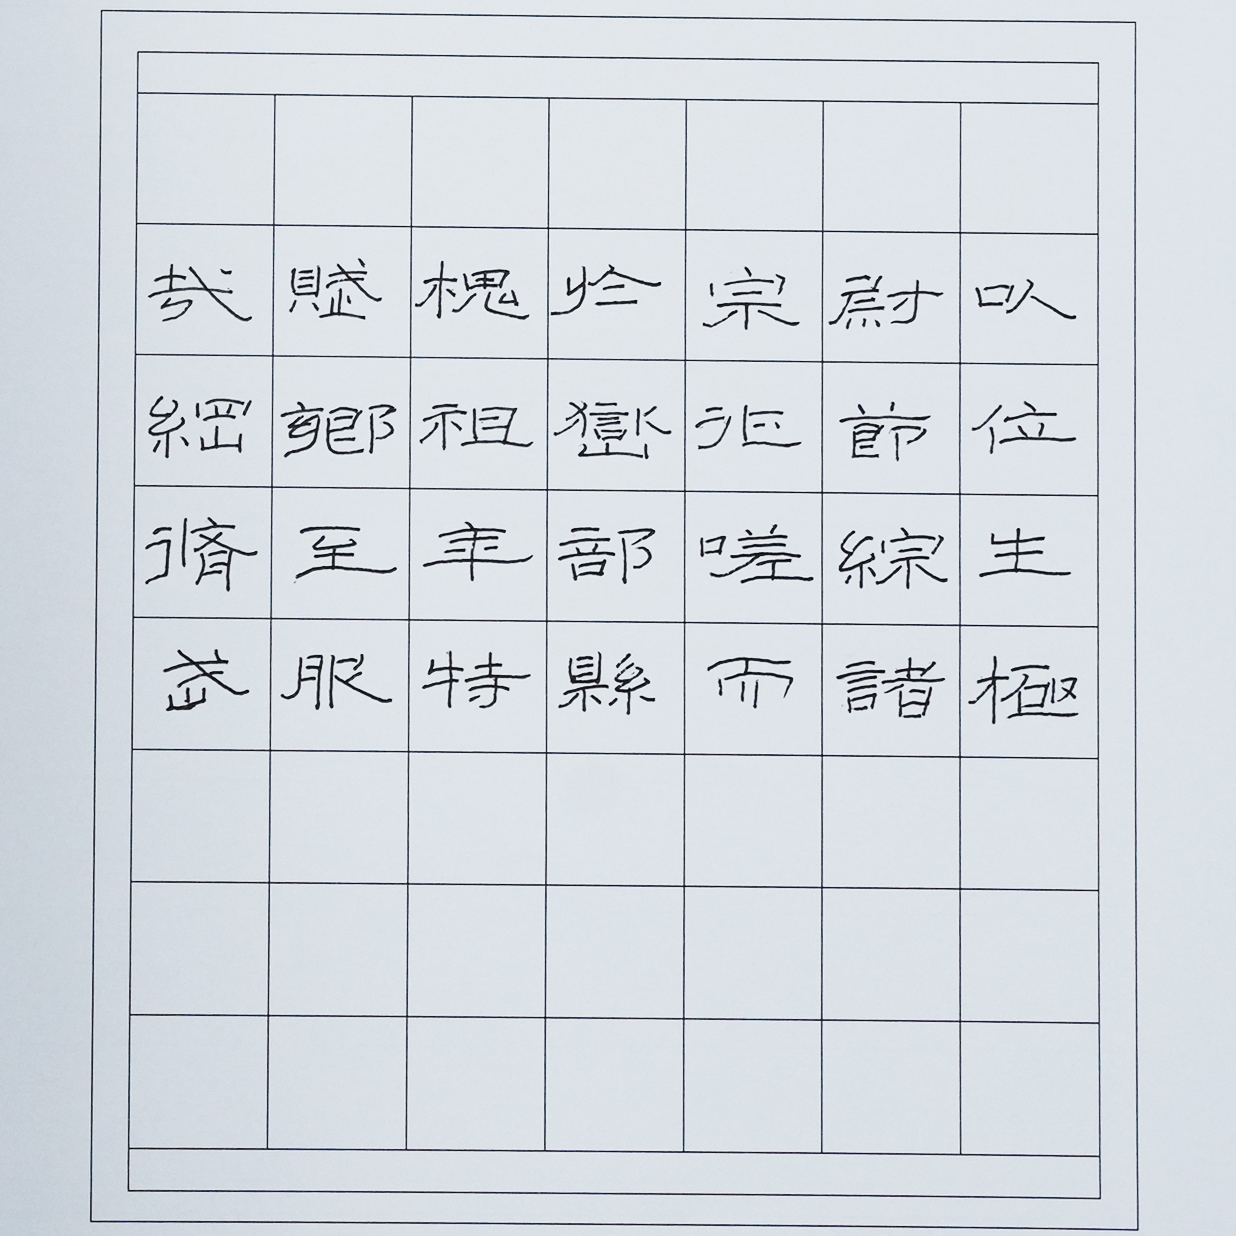 以位生極
尉節綜諸
宗嗟而
於嶽部縣
槐祖年特
賦鄉至服
哉綱脩武